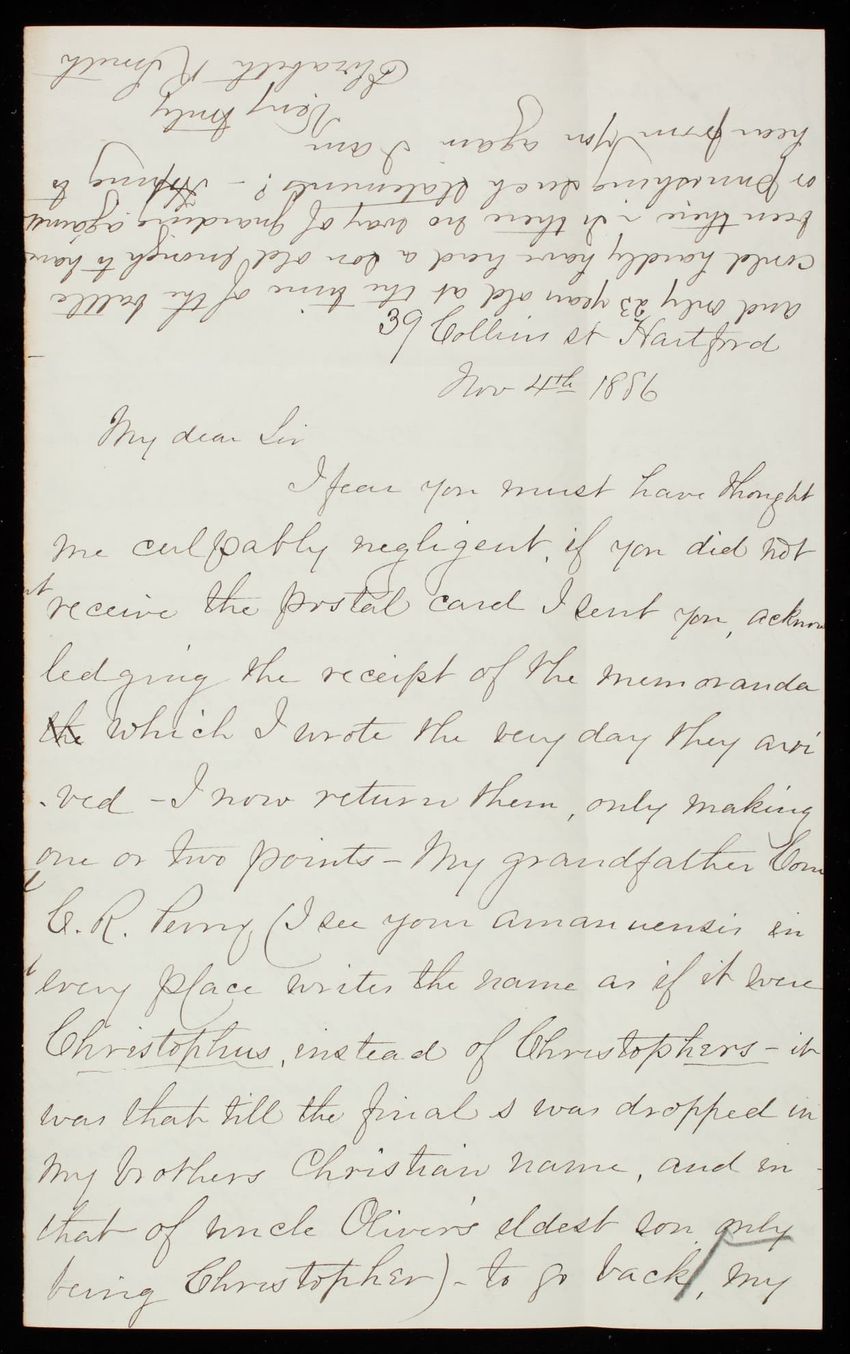 39 Collins st Hartford
Nov 4th 1889
My dear Sir
I fear you must have thought
me culpably negligent, if you did not
receive the postal card I sent you, acknow
ledging the receipt of the memoranda
the which I wrote the very day they arri
-ved - I now return them, only making
one or two points - My grandfather Com
C. R. Perry (I see your amanuensis in
every place writes the name as if it were
Christophus, instead of Christophers - it
was that till the final s was dropped in
my brothers Christian name, and in
that of uncle Oliver's eldest son only
being Christopher) - to go back, my
and only 23 years old at the time of the battle
could hardly have had a son old enough to have
been there - Is there no way of guarding against
or punishing such statements? - Hoping to
hear from you again I am
Very truly
Elizabeth R Smith